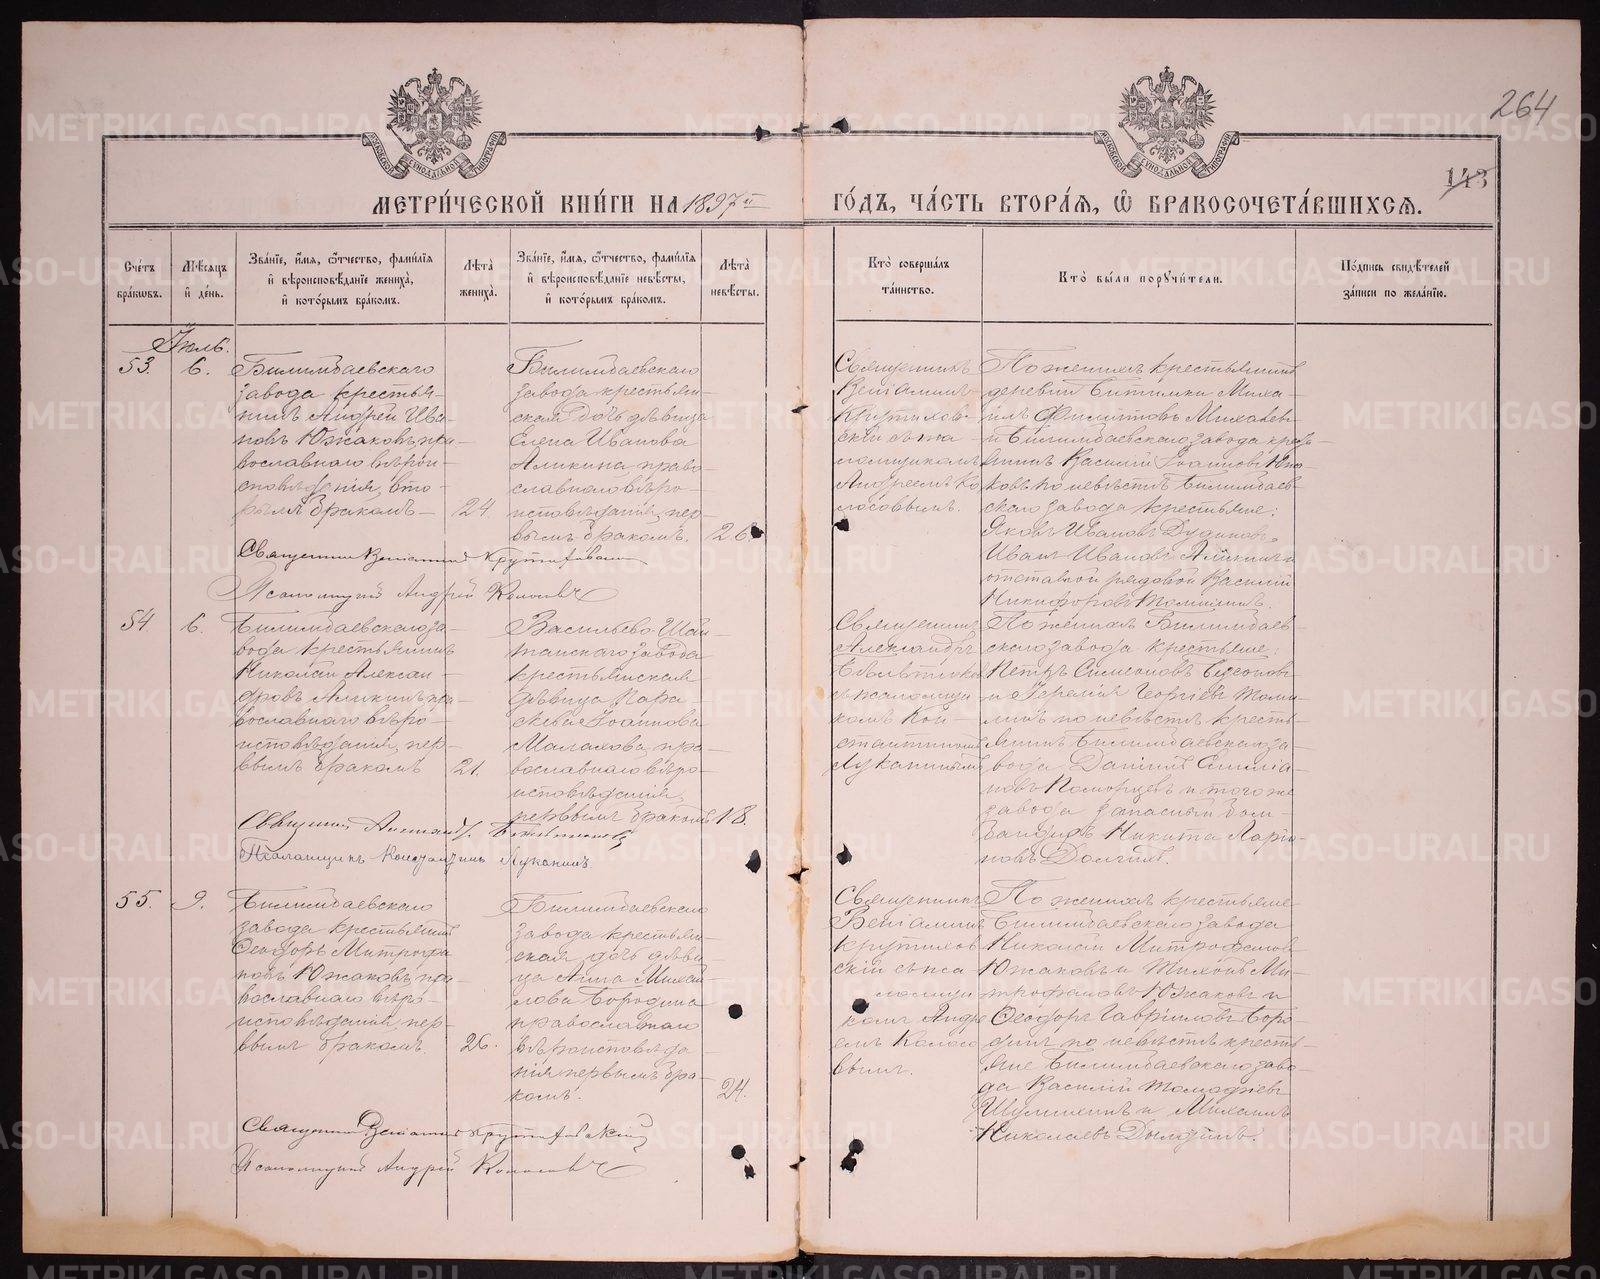 264
143
МЕТРИ́ЧЕСКОЙ КНИ́ГИ НА 1897й
ГО́ДЪ, ЧА́СТЬ ВТОРА́Я, Ѡ҆ БРАКОСОЧЕТА́ВШИХСЯ.
Сче́тъ
бра́ковъ.
Мѣ́сяцъ
и҆ де́нь.
Зва́нїе, и҆́мя, ѻ҆́тчество, фамѝлїя
и҆ вѣроисповѣ́данїе жениха̀,
и҆ кото́рымъ бра́комъ.
Лѣ́та
жениха̀.
Зва́нїе, и҆́мя, ѻ҆́тчество, фамѝлїя
и҆ вѣроисповѣ́данїе невѣ́сты,
и҆ кото́рымъ бра́комъ.
Лѣ́та
невѣ́сты.
Кто̀ соверша́лъ
та́инство.
Кто̀ бы́ли порꙋчи́тели.
По́дпись свидѣ́телей
за́писи по жела́нїю.
Іюль.
53.
6.
Билимбаевскаго
завода крестья-
нинъ Андрей Ива-
новъ Южаковъ, пра-
вославнаго вѣрои-
сповѣданія, вто-
рымъ бракомъ
24.
Билимбаевскаго
завода крестьян-
ская дочь дѣвица
Елена Иванова
Аликина, право-
славнаго вѣро-
исповѣданія, пер-
вымъ бракомъ.
26
Священникъ
Веніаминъ
Крутихов-
скій съ пса-
ломщикомъ
Андреемъ Ко
лосовымъ.
По женихѣ крестьянинъ
деревни Битимки Миха-
илъ Филиповъ Михалев
и Билимбаевскаго завода крест-
янинъ Василій Іоанновъ Южа-
ковъ по невѣстѣ Билимбаев-
скаго завода крестьяне:
Яковъ Ивановъ Дудинъ,
Иванъ Ивановъ Аликинъ и
отставной рядовой Василій
Никифоровъ Томилинъ.
Священникъ Веніаминъ Крутиховскій
Псаломщикъ Андрей Колосовъ
54
6.
Билимбаевскаго за-
вода крестьянинъ
Николай Алексан-
дровъ Аликинъ, пра-
вославнаго вѣро-
исповѣданія, пер-
вымъ бракомъ
21.
Васильево-Шай-
танскаго завода
крестьянская
дѣвица Пара-
скева Іоаннова
Малахова, пра-
вославнаго вѣро-
исповѣданія,
первымъ бракомъ
18.
Священникъ
Александръ
съ псаломщи-
комъ Кон-
стантиномъ
Луканинымъ
По женихѣ Билимбаев-
скаго завода крестьяне:
Петръ Симеоновъ
и Іеремія Георгіевъ Томи-
линъ по невѣстѣ кресть-
янинъ Билимбаевскаго за-
вода Даніилъ
новъ Поморцевъ и того же
завода запасный бом-
бардиръ Никита Ларіо-
новъ Долгихъ.
Священникъ
Псаломщикъ Константинъ Луканинъ
55.
9.
Билимбаевскаго
завода крестьянинъ
Ѳеодоръ Митрофа
новъ Южаковъ, пра-
вославнаго вѣро-
исповѣданія, пер-
вымъ бракомъ.
26.
Билимбаевскаго
завода крестьян-
ская дочь дѣви-
ца Анна Михай
лова Бородина
православнаго
вѣроисповѣда-
нія первымъ бра-
комъ.
24.
Священникъ
Веніаминъ
Крутихов
скій съ пса
ломщи
комъ Андре
емъ Колосо
вымъ.
По женихѣ крестьяне
Билимбаевскаго завода
Николай Митрофанов
Южаковъ и Тихонъ Ми-
трофановъ Южаковъ и
Ѳеодоръ Гавриловъ Боро-
динъ по невѣстѣ кресть-
яне Билимбаевскаго заво-
да Василій
и Михаилъ
Николаевъ
Священникъ Веніаминъ Крутиховскій
Псаломщикъ Андрей Колосовъ
METRIKI.GASO-URAL.RU